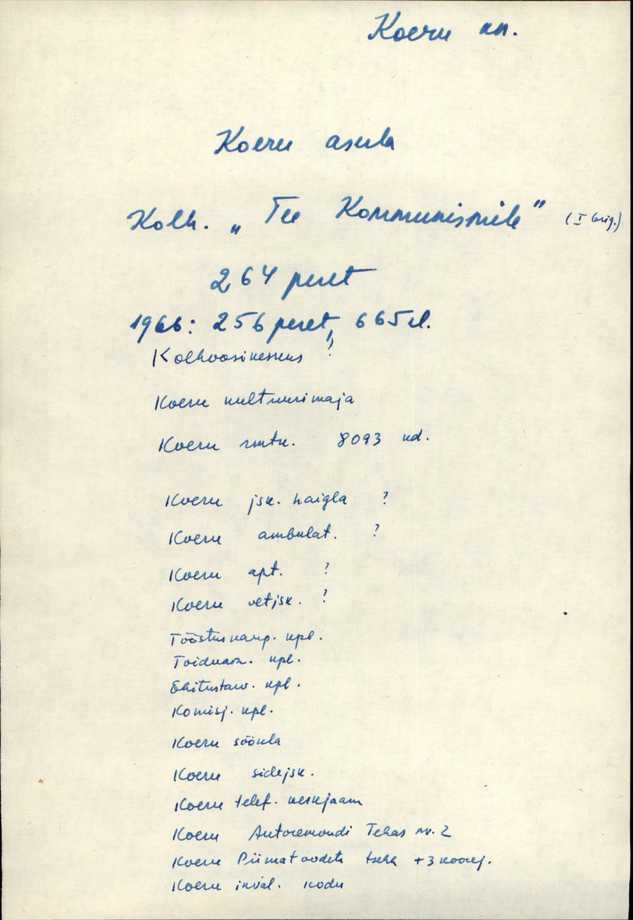 Koeru kn.
Koeru asula
Kolh. „Tee Kommunismile" (I brig.)
264 peret
1966: 256 peret, 665 el.
Kolhoosikeskus ?
Koeru kultuurimaja
Koeru rmtk. 8093 kd.
Koeru jsk. haigla ?
Koeru ambulat. ?
Koeru apt. ?
Koeru vetjsk. ?
Tööstuskaup. kpl.
Toiduain. kpl.
Ehitustarv. kpl.
Komisj. kpl.
Koeru söökla
Koeru sidejsk.
Koeru telef. keskjaam
Koeru Autoremondi Tehas nr. 2
Koeru Piimatoodete tsehh + 3 koorej.
Koeru inval. kodu